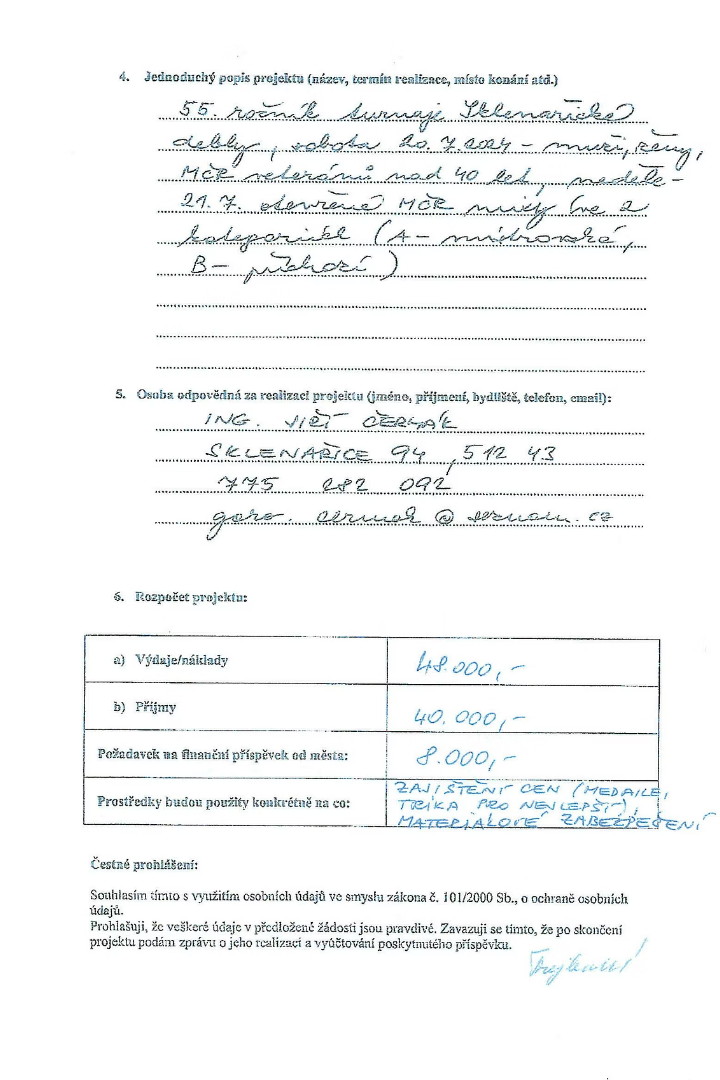 4. Jednoduchý popis projektu (název, termín realizace, místo konání atd.)
55. ročník turnaje Sklenařické
debly, sobota 20.7.2024 - muži, ženy,
MČR veteránů nad 40 let, neděle -
21.7. otevřené MČR mixy (ve 2
kategoriích (A - mistrovská,
B - příchozí)
5. Osoba odpovědná za realizaci projektu (jméno, příjmení, bydliště, telefon, email):
ING. JIŘÍ ČERMÁK
SKLENAŘICE 94, 512 43
775 282 092
goro.cermak@seznam.cz
6. Rozpočet projektu:
a) Výdaje/náklady 48.000,-
b) Příjmy 40.000,-
Požadavek na finanční příspěvek od města: 8.000,-
Prostředky budou použity konkrétně na co: ZAJIŠTĚNÍ CEN (MEDAILE,
TRIKA PRO NEJLEPŠÍ),
MATERJÁLOVÉ ZABEZPEČENÍ
Čestné prohlášení:
Souhlasím tímto s využitím osobních údajů ve smyslu zákona č. 101/2000 Sb., o ochraně osobních
údajů.
Prohlašuji, že veškeré údaje v předložené žádosti jsou pravdivé. Zavazuji se tímto, že po skončení
projektu podám zprávu o jeho realizaci a vyúčtování poskytnutého příspěvku.